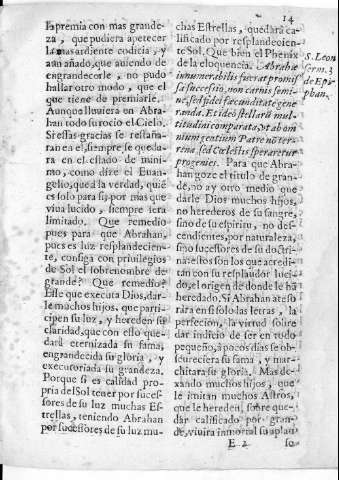 14
la premia con mas grande-
za, que pudiera apetecer
la mas ardiente codicia, y
aun añado, que auiendo de
engrandecerle, no pudo
hallar otro modo, que el
que tiene de premiarle.
Aunque lluuiera en Abra-
han todo su rocio el Cielo.
Si essas gracias se restaña-
ran en el, siempre se queda-
ra en el estado de mini-
mo, como dize el Euan-
gelio, que à la verdad, quiē
es solo para si, por mas que
viua lucido, siempre serà
limitado. Que remedio
pues para que Abrahan,
pues es luz resplandecien-
te, consiga con priuilegios
de Sol el sobrenombre de
grande? Que remedio?
Esse que executa Dios, dar-
le muchos hijos, que parti-
cipen su luz, y hereden su
claridad, que con esto que-
darà eternizada su fama,
engrandecida su gloria, y
executoriada su grandeza.
Porque si es calidad pro-
pria del Sol tener por sucес-
sores de su luz muchas Es-
trellas, teniendo Abrahan
por sucessores de su luz mu-
chas Estrellas, quedarà ca-
lificado por resplandecien-
te Sol. Que bien el Phenix
de la eloquencia. Abrahæ
innumerabilis fuerat promis
sa successio, non carnis semi-
ne, sed fidei fæcunditate gene
randa. Et ideo stellarū mul-
titudini comparata, vt ab om
nium gentium Patre nō terre
na, sed Cœlestis speraretur
progenies. Para que Abra-
han goze el titulo de gran-
de, no ay otro medio que
darle Dios muchos hijos,
no herederos de su sangre,
sino de su espiritu, no des-
cendientes, por naturaleza,
sino sucessores de su doctri-
na: estos son los que acredi-
tan con su resplandor luci-
do, el origen de donde le hā
heredado. Si Abrahan ateso
rara en si solo las letras, la
perfecion, la virtud sobre
dar indicio de ser en todo
pequeño, à pocos dias se obs-
cureciera su fama, y mar-
chitara su gloria. Mas de-
xando muchos hijos, que
le imitan muchos Astros,
que le hereden, sobre que-
dar calificado por gran-
de, viuira inmortal su aplau
E 2 so
S. Leon
serm. 3
de Epi-
phan.